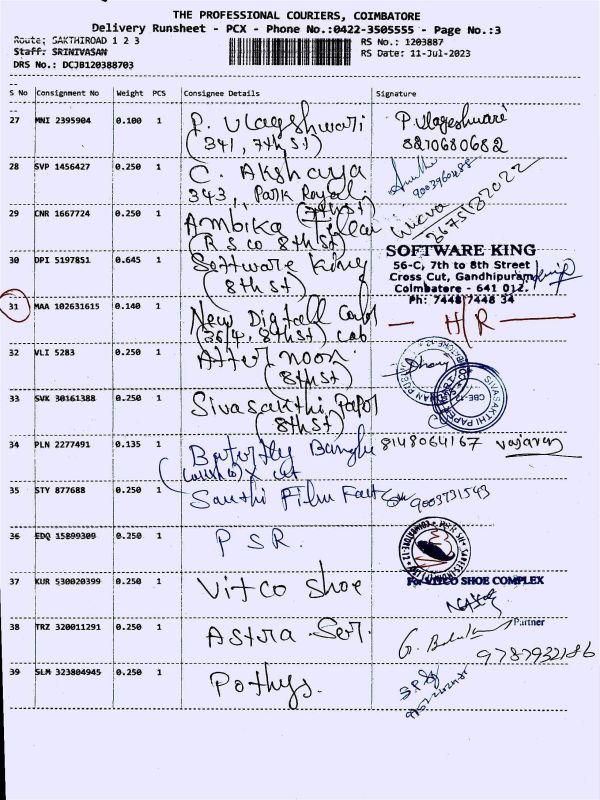 THE PROFESSIONAL COURIERS, COIMBATORE
Delivery Runsheet - PCX - Phone No.:0422-3505555 - Page No.:3
Route: SAKTHIROAD 1 2 3
RS No.: 1203887
Staff: SRINIVASAN
RS Date: 11-Jul-2023
DRS No.: DCJB120388703
S No Consignment No Weight PCS Consignee Details Signature
27 MNI 2395904 0.100 1 P. Ulageshwari P. Ulageshwari
(341, 7th St) 8210680682
28 SVP 1456427 0.250 1 C. Akshaya
343, Park Royal
(7th St)
29 CNR 1667724 0.250 1 Ambika
(R.S.co 8th St)
30 DPI 5197851 0.645 1 Software King
(8th St)
SOFTWARE KING
56-C, 7th to 8th Street
Cross Cut, Gandhipuram
Coimbatore - 641 012.
Ph: 7448 7448 34
31 MAA 102631615 0.140 1 New Digitall
(36/4, 8th St) - H/R -
32 VLI 5283 0.250 1 After noon
(8th St)
33 SVK 30161388 0.250 1 Sivasakthi
(8th St)
SIVASAKTHI PAPER
CBE-12
34 PLN 2277491 0.135 1 Buterfly Bangle 8148064167
X cut
35 STY 877688 0.250 1 Santhi Film 9003731543
36 EDQ 15899309 0.250 1 P S R.
37 KUR 530020399 0.250 1 Vitco Shoe
For VITCO SHOE COMPLEX
Partner
38 TRZ 320011291 0.250 1 Astra Ser.
9787932186
39 SLM 323804945 0.250 1 Pothys.